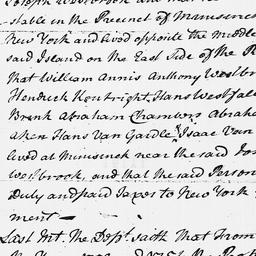 Joseph Westbrook and that he
stable in the Precinct of Minisinck
New York and lived opposite the middle
said Island on the East Side of the R
That William Annis Anthony Westbr
Hendrick Kortright Hans Westfall
Brink Abraham Chambers Abraha
aken Hans Van Gardle Isaac Van
lived at Minisinck near the said Jos
Westbrook, and that the said Person
Duly and paid Taxes to New York
ment —
Last Int. The Depᵗ. saith That From